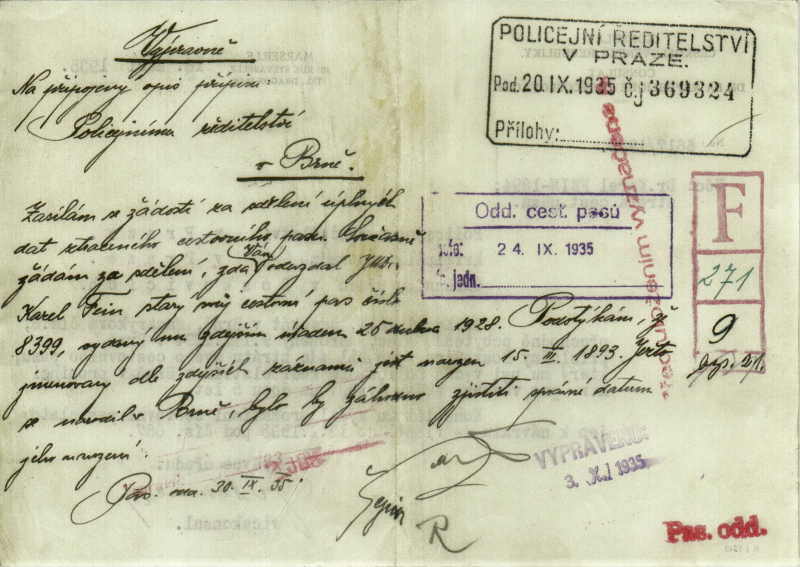 Výpravně
Na připojený opis připiš:
Policejnímu ředitelství
v Brně.
Zasílám se žádostí za sdělení úplných
dat ztraceného cestovního pasu. Současně
žádám za sdělení, zda Vám odevzdal JUDr.
Karel Fein starý svůj cestovní pas číslo
8399, vydaný mu zdejším úřadem 25 dubna 1928. Podotýkám, že
jmenovaný dle zdejších záznamů jest narozen 15. III. 1893. Ježto
se narodil v Brně, bylo by záhodno zjistiti správné datum
jeho narození.
Pas. odd. 30. IX. 35.
R
POLICEJNÍ ŘEDITELSTVÍ
V PRAZE.
Pod. 20. IX. 1935 č.j 369324
Přílohy:
Odd. cest. pasů
24. IX. 1935
č. jedn.
F
271
9
VYPRAVENO:
3. X. 1935
Pas. odd.